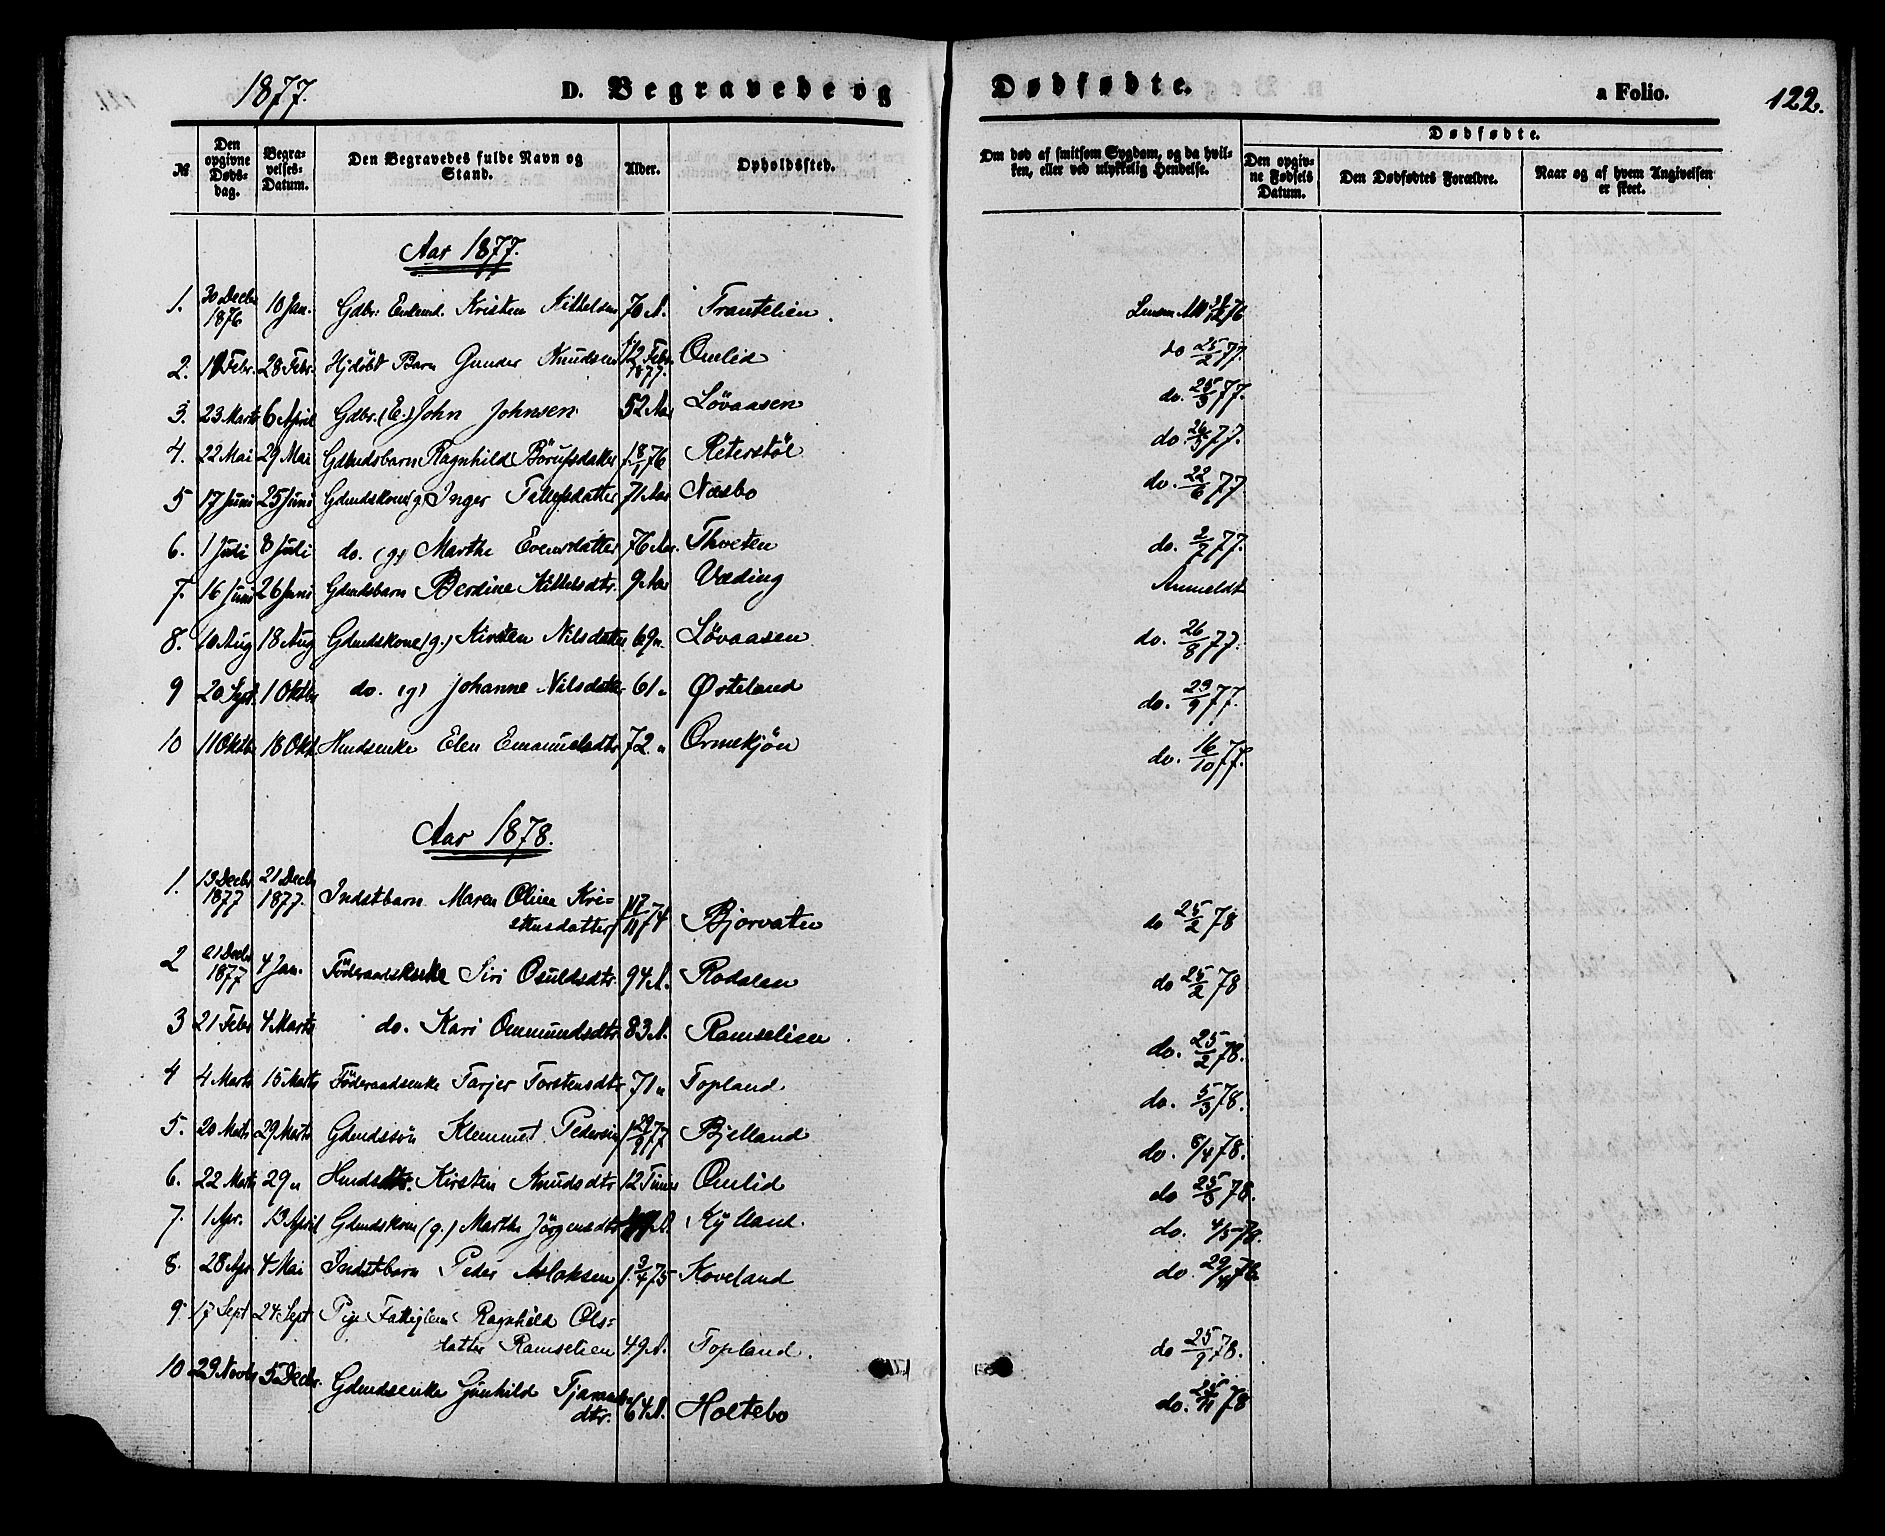 1877.
D. Begravede og Dødfødte.
a Folio.
122.
№
Den opgivne Døds-dag.
Begra-velses-Datum.
Den Begravedes fulde Navn og Stand.
Alder.
Opholdssted.
Om død af smitsom Sygdom, og da hvil-ken, eller ved ulykkelig Hendelse.
Dødfødte.
Den opgiv-ne Fødsels Datum.
Den Dødfødtes Forældre.
Naar og af hvem Angivelsen er skeet.
Aar 1877.
1. 30 Decbr 1876 10 Jan. Gdbr. Kristen Kittelsen 70 A. Trautelien
2. Febr. 28 Febr. Hjdöbt Barn Gunder Knudsen 12 Febr. 1877. Omlid do 25/2 77.
3. 23 Marts 6 April Gdbr. (E.) John Johnsen 52 Aar Lövaasen do. 25/3 77.
4. 22 Mai 29 Mai Gdmdsbarn Ragnhild f. 18/1 76 Reterstöl do. 26/5 77.
5 17 Juni 25 Juni Gdmdskone (g.) Inger Tellefsdatter 71 Aar Næsbo do. 22/6 77
6. 1 Juli 8 Juli do. (g) Marthe Evensdatter 76 Aar. Thveten do. 2/7 77.
7. 16 Juni 26 Juni Gdmdsbarn Berdine Kittelsdtr. 9 Aar Væding Anmeldt
8. 10 Aug 18 Aug Gdmdskone (g.) Kirsten Nilsdatter 69 " Lövaasen do. 26/8 77.
9 20 Sept. 1 Oktbr do. (g) Johanne Nilsdatter 61 " Østeland do. 23/9 77.
10 11 Oktb. 18 Okt. Hmdsenke Elen Emanuelsdtr 72. " Ormekjön do. 16/10 77.
Aar 1878.
1. 13 Decbr 1877 21 Decbr 1877. Indstbarn Maren Oline Kri=
stensdatter 74 Bjorvatn do 25/2 78
2 21 Decbr 1877 4 Jan. Föderaadsenke Siri Osuldsdtr. 94 A. Rodalen do 25/2 78
3 21 Febr 4 Marts do. Kari Ommundsdtr. 83 A. Ramselien do. 25/2 78.
4 4 Marts 15 Marts Föderaadsenke Tarjer Torstensdtr 71 " Topland do. 5/3 78.
5. 20 Marts 29 Marts Gdmdssön Klemmet Pedersen f. 29/9 77 Bjelland do. 8/4 78.
6. 22 Marts 29 " Hmdsdtr. Kirsten Knudsdtr 12 Timer Omlid do 25/3 78.
7. 1 Apr. 13 April Gdmdskone (g.) Marthe Jörgensdtr A. Kylland. do. 4/5 78.
8. 28 Apr. 4 Mai Indstbarn Peder Aslaksen f. 3/4 75 Koveland do. 29/4 78.
9. 17 Sept 24 Sept Pige Fattiglem Ragnhild Ols=
datter Ramselien 49 A. Topland. do 25/9 78.
10 29 Novbr 5 Decbr. Gdmdsenke Gunhild
dtr. 64 A. Holtebo do. 25/11 78